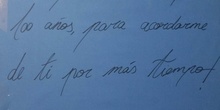 100 años, para acordarme
de ti por más tiempo!